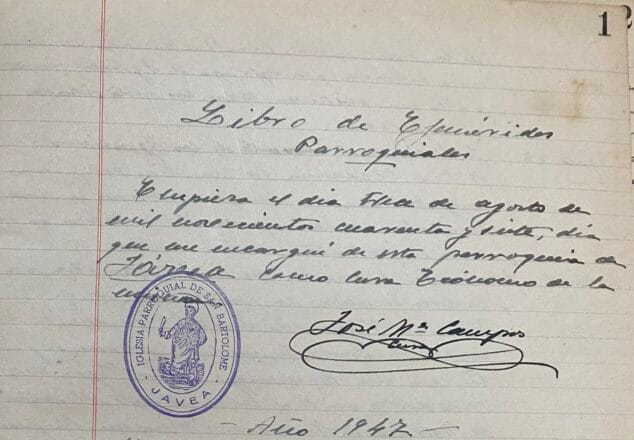 1
2
Libro de Efemérides
Parroquiales
Empieza el dia trece de agosto de
mil novecientos cuarenta y siete, dia
que me encargué de esta parroquia de
Jávea como Cura Ecónomo de la
misma
IGLESIA PARROQUIAL DE SAN BARTOLOME
- JAVEA -
José Mª Campos
cura
- Año 1947 -